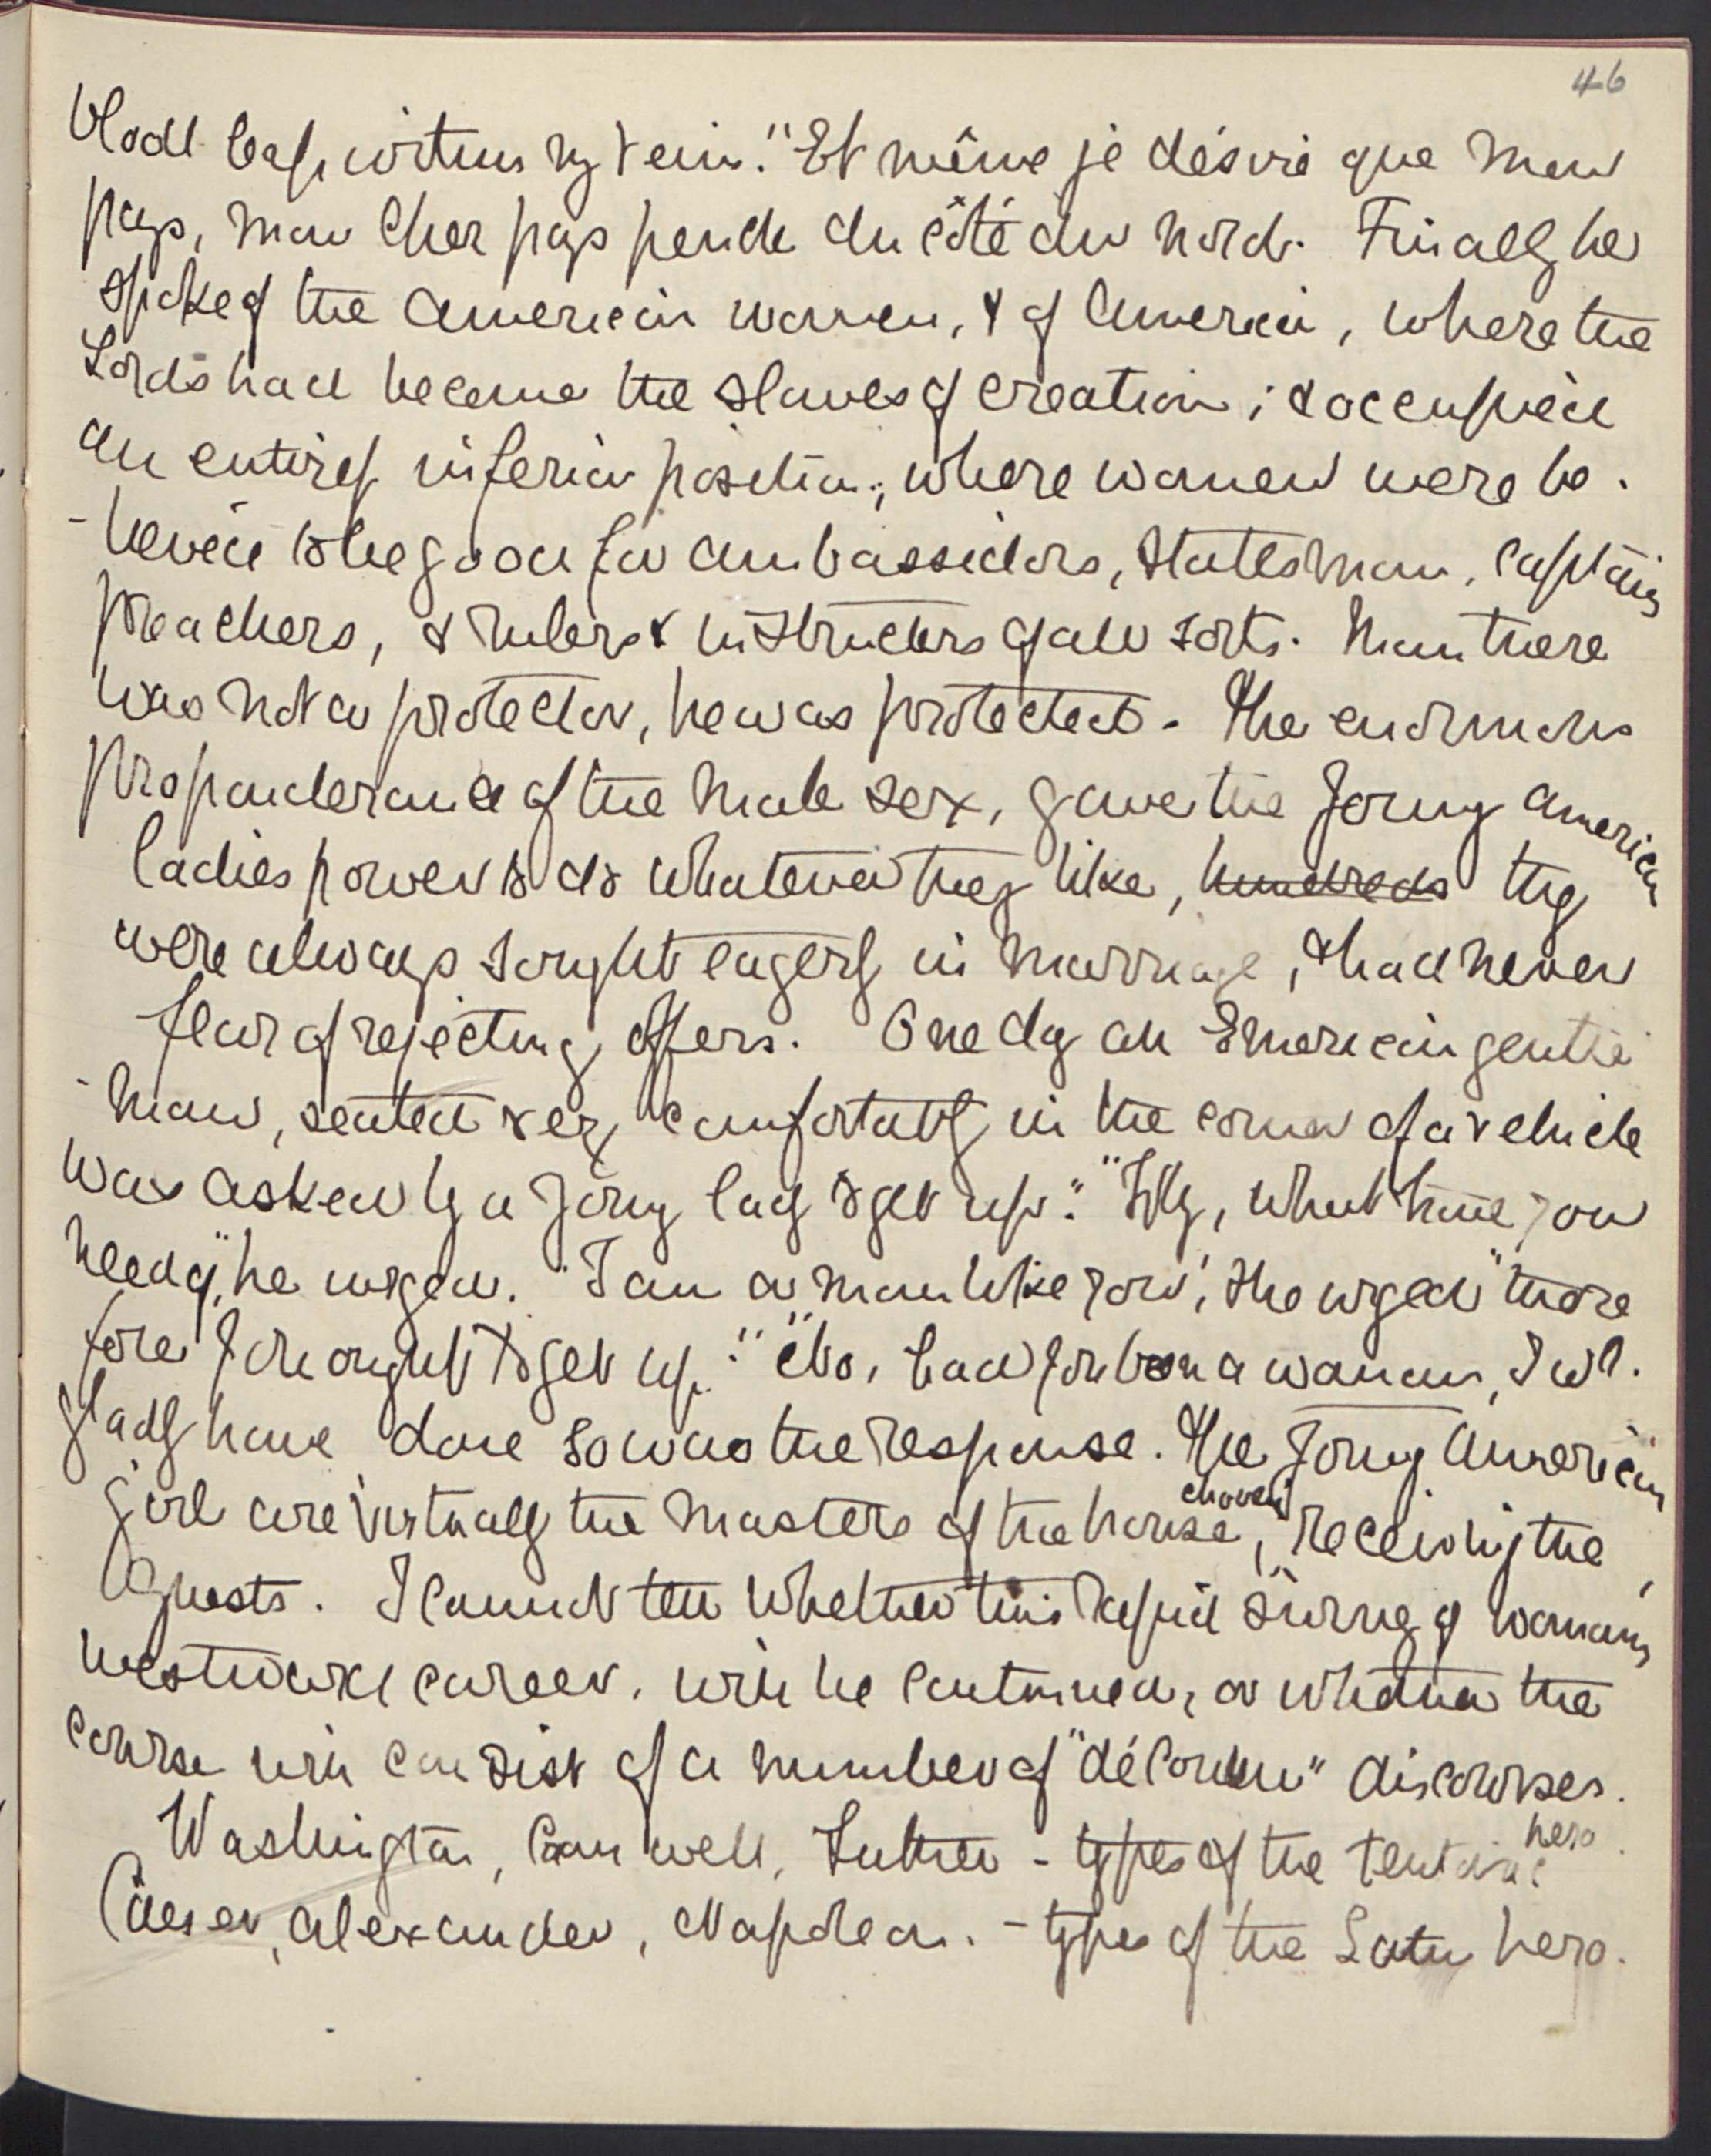 46
blood leap within my veins." Et même je désire que mon
pays, mon cher pays penche du côté du nord. Finally he
spoke of the American women, & of America, where the
Lords had become the slaves of creation; & occupied
an entirely inferior position; where women were be-
-lieved to be good for ambassidors, statesman, captains
preachers, & rulers & instructors of all sorts. Man there
was not a protector, he was protected. The enormous
preponderance of the male sex, gave the young American
ladies power to do whatever they like, hundreds they
were always sought eagerly in marriage, & had never
fear of rejecting offers. One day an American gentle
-man, seated very comfortably in the corner of a vehicle
was asked by a young lady to get up." "Why, what have you
need of," he urged. "I am a man like you", she urged "there
fore you ought to get up." "No, had you been a woman, I wd.
gladly have done so was the response. The young American
girl are virtually the masters of the house, receiving the
guests. I cannot tell whether this rapid survey of womans
westward career. will be continued, or whether the
course will consist of a number of "décousu" discourses.
Washington, Cromwell, Luther - types of the teutonic hero.
Caeser, Alexander, Napolean. - types of the Latin hero.